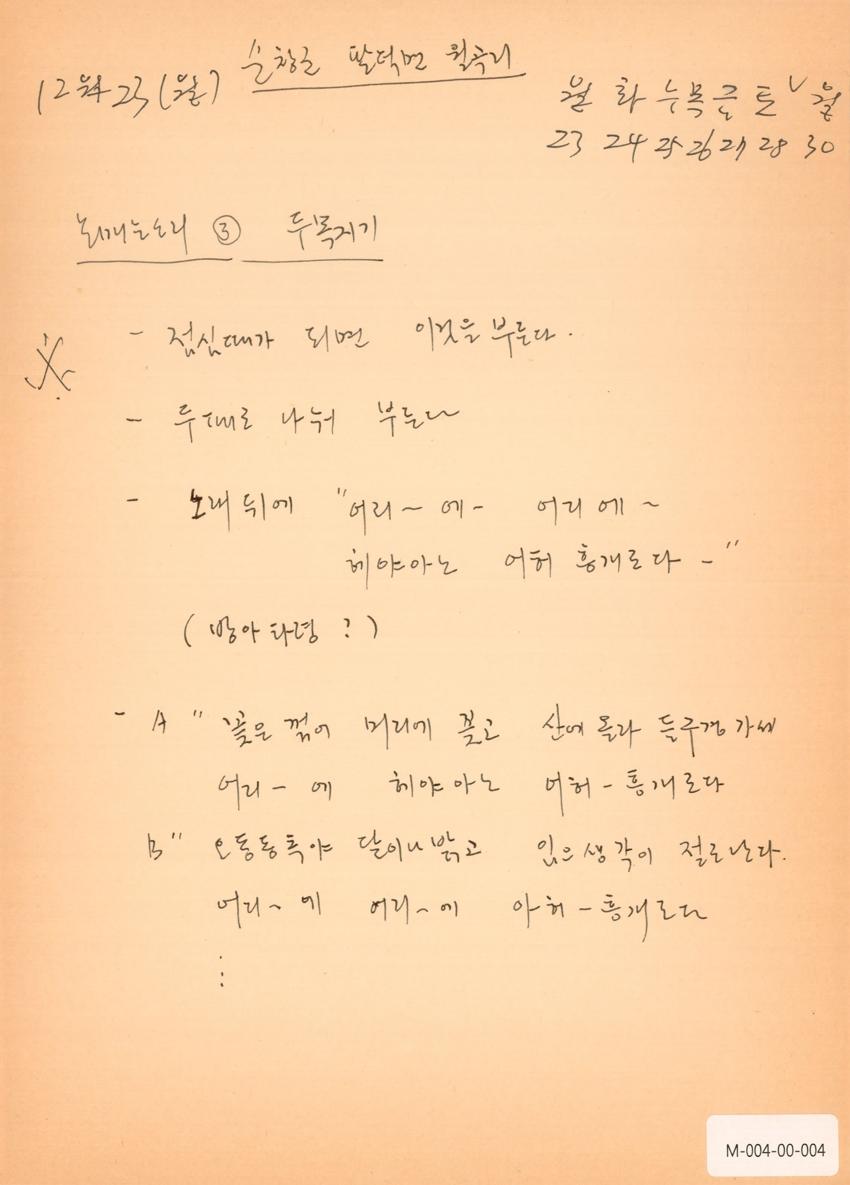 12월 23 (월) 순창군 팔덕면 월곡리
월 화 수 목 금 토 ∨ 월
23 24 25 26 27 28 30
③ 두목지기
- 점심때가 되면 이것을 부른다.
- 두패로 나눠 부른다
- 노래 뒤에 "어리~ 에- 어리 에 ~
헤야아노 어허 흥게로다 -"
( 방아타령 ? )
- A " 꽃은 꺾어 머리에 꽂고 산에 올라 들구경 가세
어리 - 에 헤야아노 어허 - 흥게로다
B " 오동동추야 달이나 밝고 임으 생각이 절로난다.
어리 ~ 에 어리 ~ 에 아허 - 흥게로다
⋮
M-004-00-004